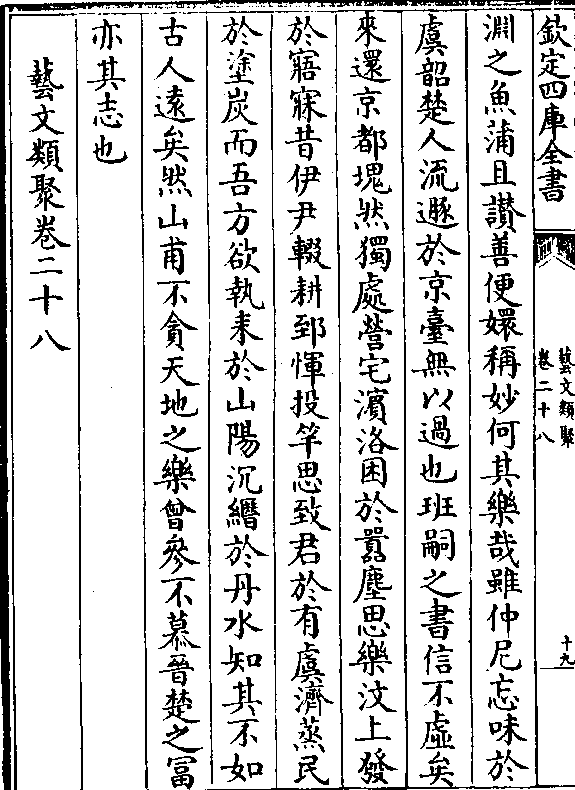 欽定四庫全書
藝文類聚
卷二十八
十九
淵之魚蒲且讃善便嬛稱妙何其樂哉雖仲尼忘味於
虞韶楚人流遯於京臺無以過也班嗣之書信不虛矣
來還京都塊然獨處營宅濵洛困於嚻塵思樂汶上發
於寤寐昔伊尹輟耕郅惲投竿思致君於有虞濟蒸民
於塗炭而吾方欲執耒於山陽沉緡於丹水知其不如
古人逺矣然山甫不貪天地之樂曾參不慕晉楚之冨
亦其志也
藝文類聚卷二十八